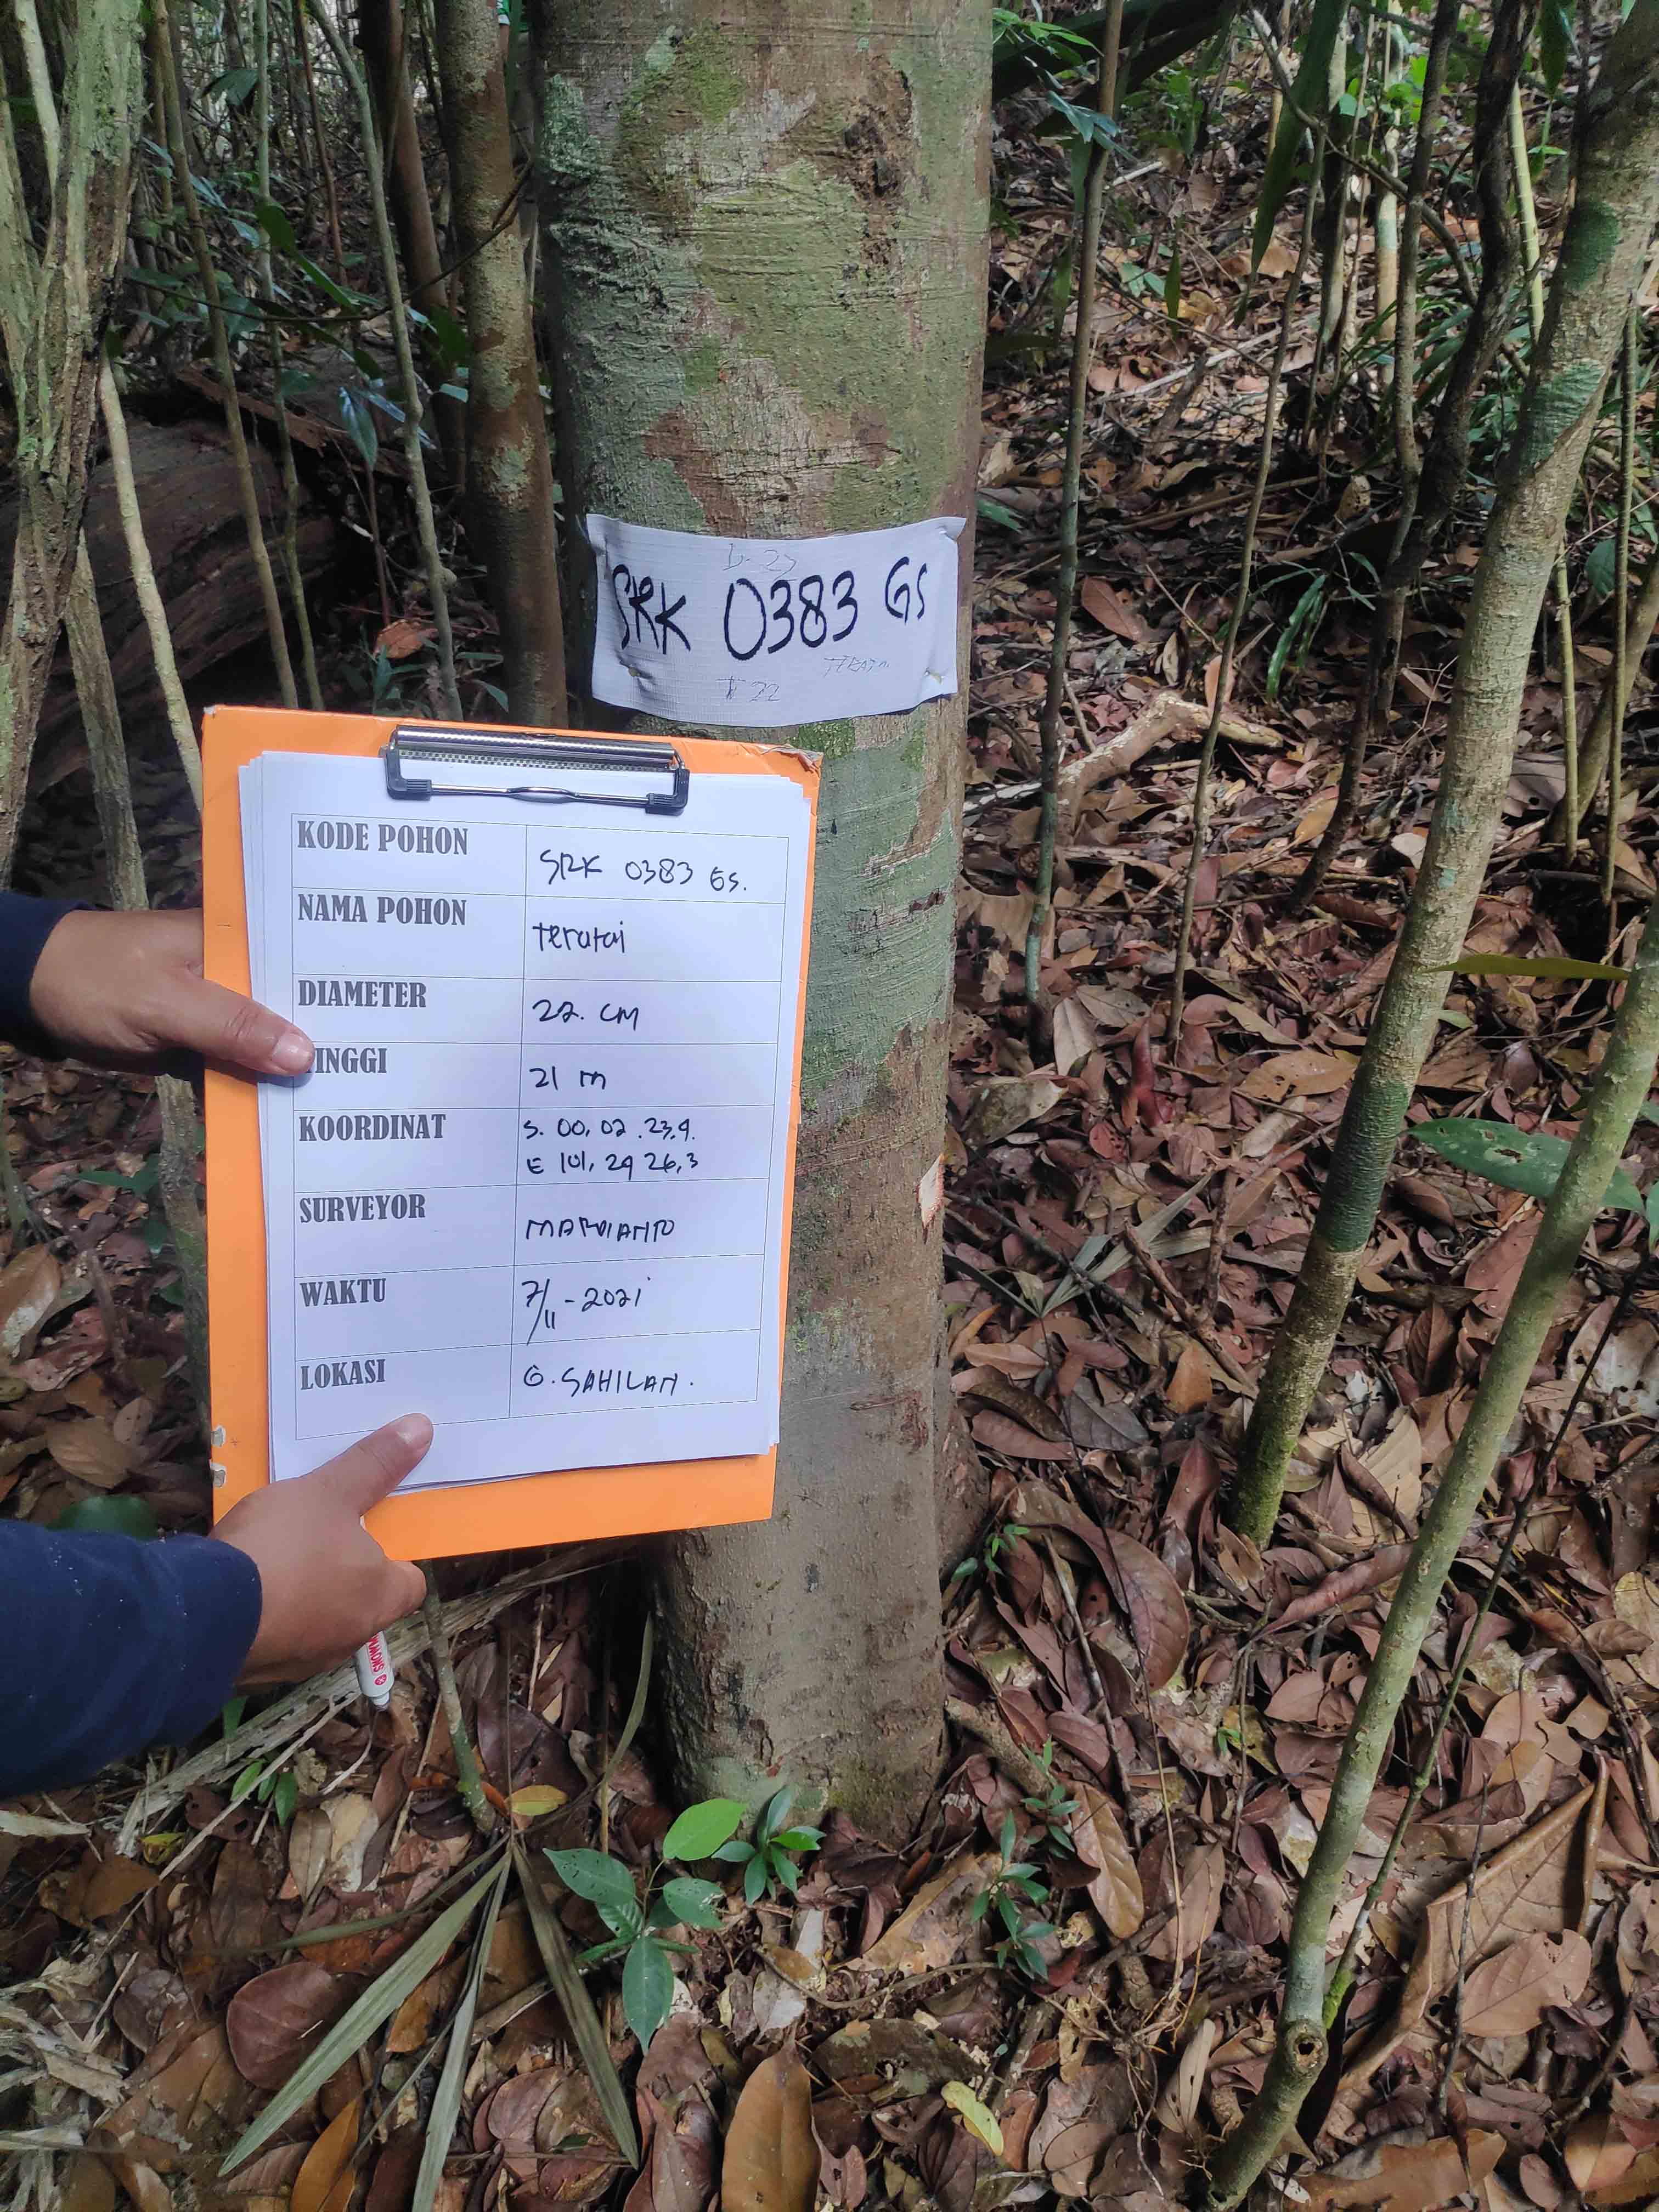 L. 23
SRK 0383 GS
TERATAI
T 22
KODE POHON
SRK 0383 GS.
NAMA POHON
teratai
DIAMETER
22. CM
TINGGI
21 m
KOORDINAT
S. 00. 02. 23,9.
E 101, 29 26,3
SURVEYOR
MARDIANTO
WAKTU
7/11-2021
LOKASI
G. SAHILAN.
SNOWMAN